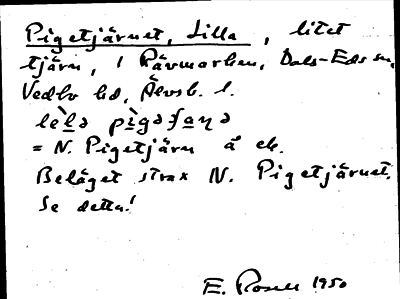 Pigetjärnet, Lilla, litet
tjärn, i Rävmarken, Dals-Eds sn,
Vedbo hd, Älvsb. l.
lèlə pìgəʃaɳə
= N. Pigetjärn å ek.
Beläget strax N. Pigetjärnet.
Se detta!
E. Rosell 1950